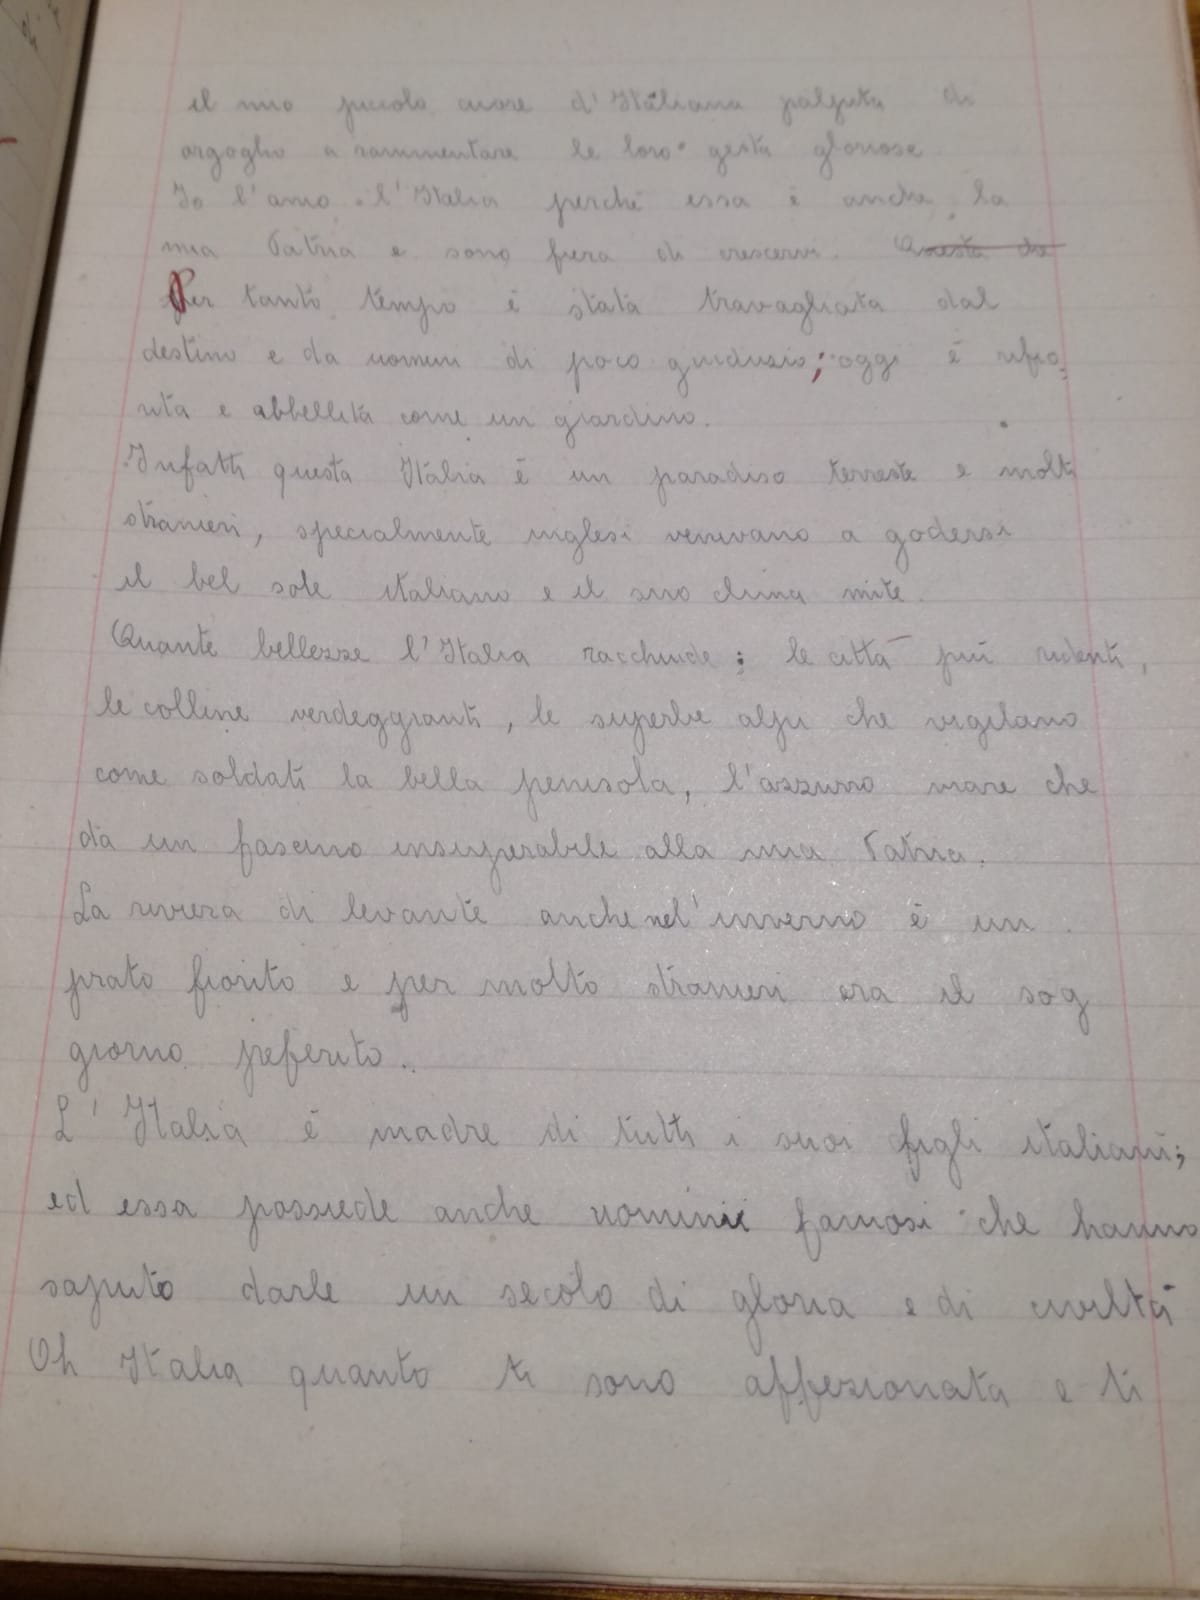 il mio piccolo cuore d'Italiana palpita di
orgoglio a rammentare le loro gesta gloriose.
Io l'amo l'Italia perché essa è anche la
mia Patria e sono fiera di crescervi. Questa che
Per tanto tempo è stata travagliata dal
destino e da uomini di poco giudizio; oggi è rifio
rita e abbellita come un giardino.
Infatti questa Italia è un paradiso terreste e molti
stranieri, specialmente inglesi venivano a godersi
il bel sole italiano e il suo clima mite.
Quante bellezze l'Italia racchiude; le città più ridenti,
le colline verdeggianti, le superbe alpi che vigilano
come soldati la bella penisola, l'azzurro mare che
dà un fascino insuperabile alla mia Patria.
La riviera di levante anche nel'inverno è un
prato fiorito e per molto stranieri era il sog
giorno preferito.
L'Italia è madre di tutti i suoi figli italiani;
ed essa possiede anche uomini famosi che hanno
saputo darle un secolo di gloria e di civiltà
Oh Italia quanto ti sono affezionata e ti